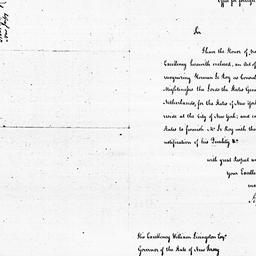 Office for foreign
Sir
I have the Honor of
Excellency herewith enclosed, an Act of
recognizing Herman le Roy as Consul
Mightinesses the Lords the States Gene
Netherlands, for the State of New York
reside at the City of New York; and
States to furnish Mr. Le Roy with
notification of his Quality &c
with great Respect
your Excelle
His Excellency William Livingston Esqr.
Governor of the State of New Jersey